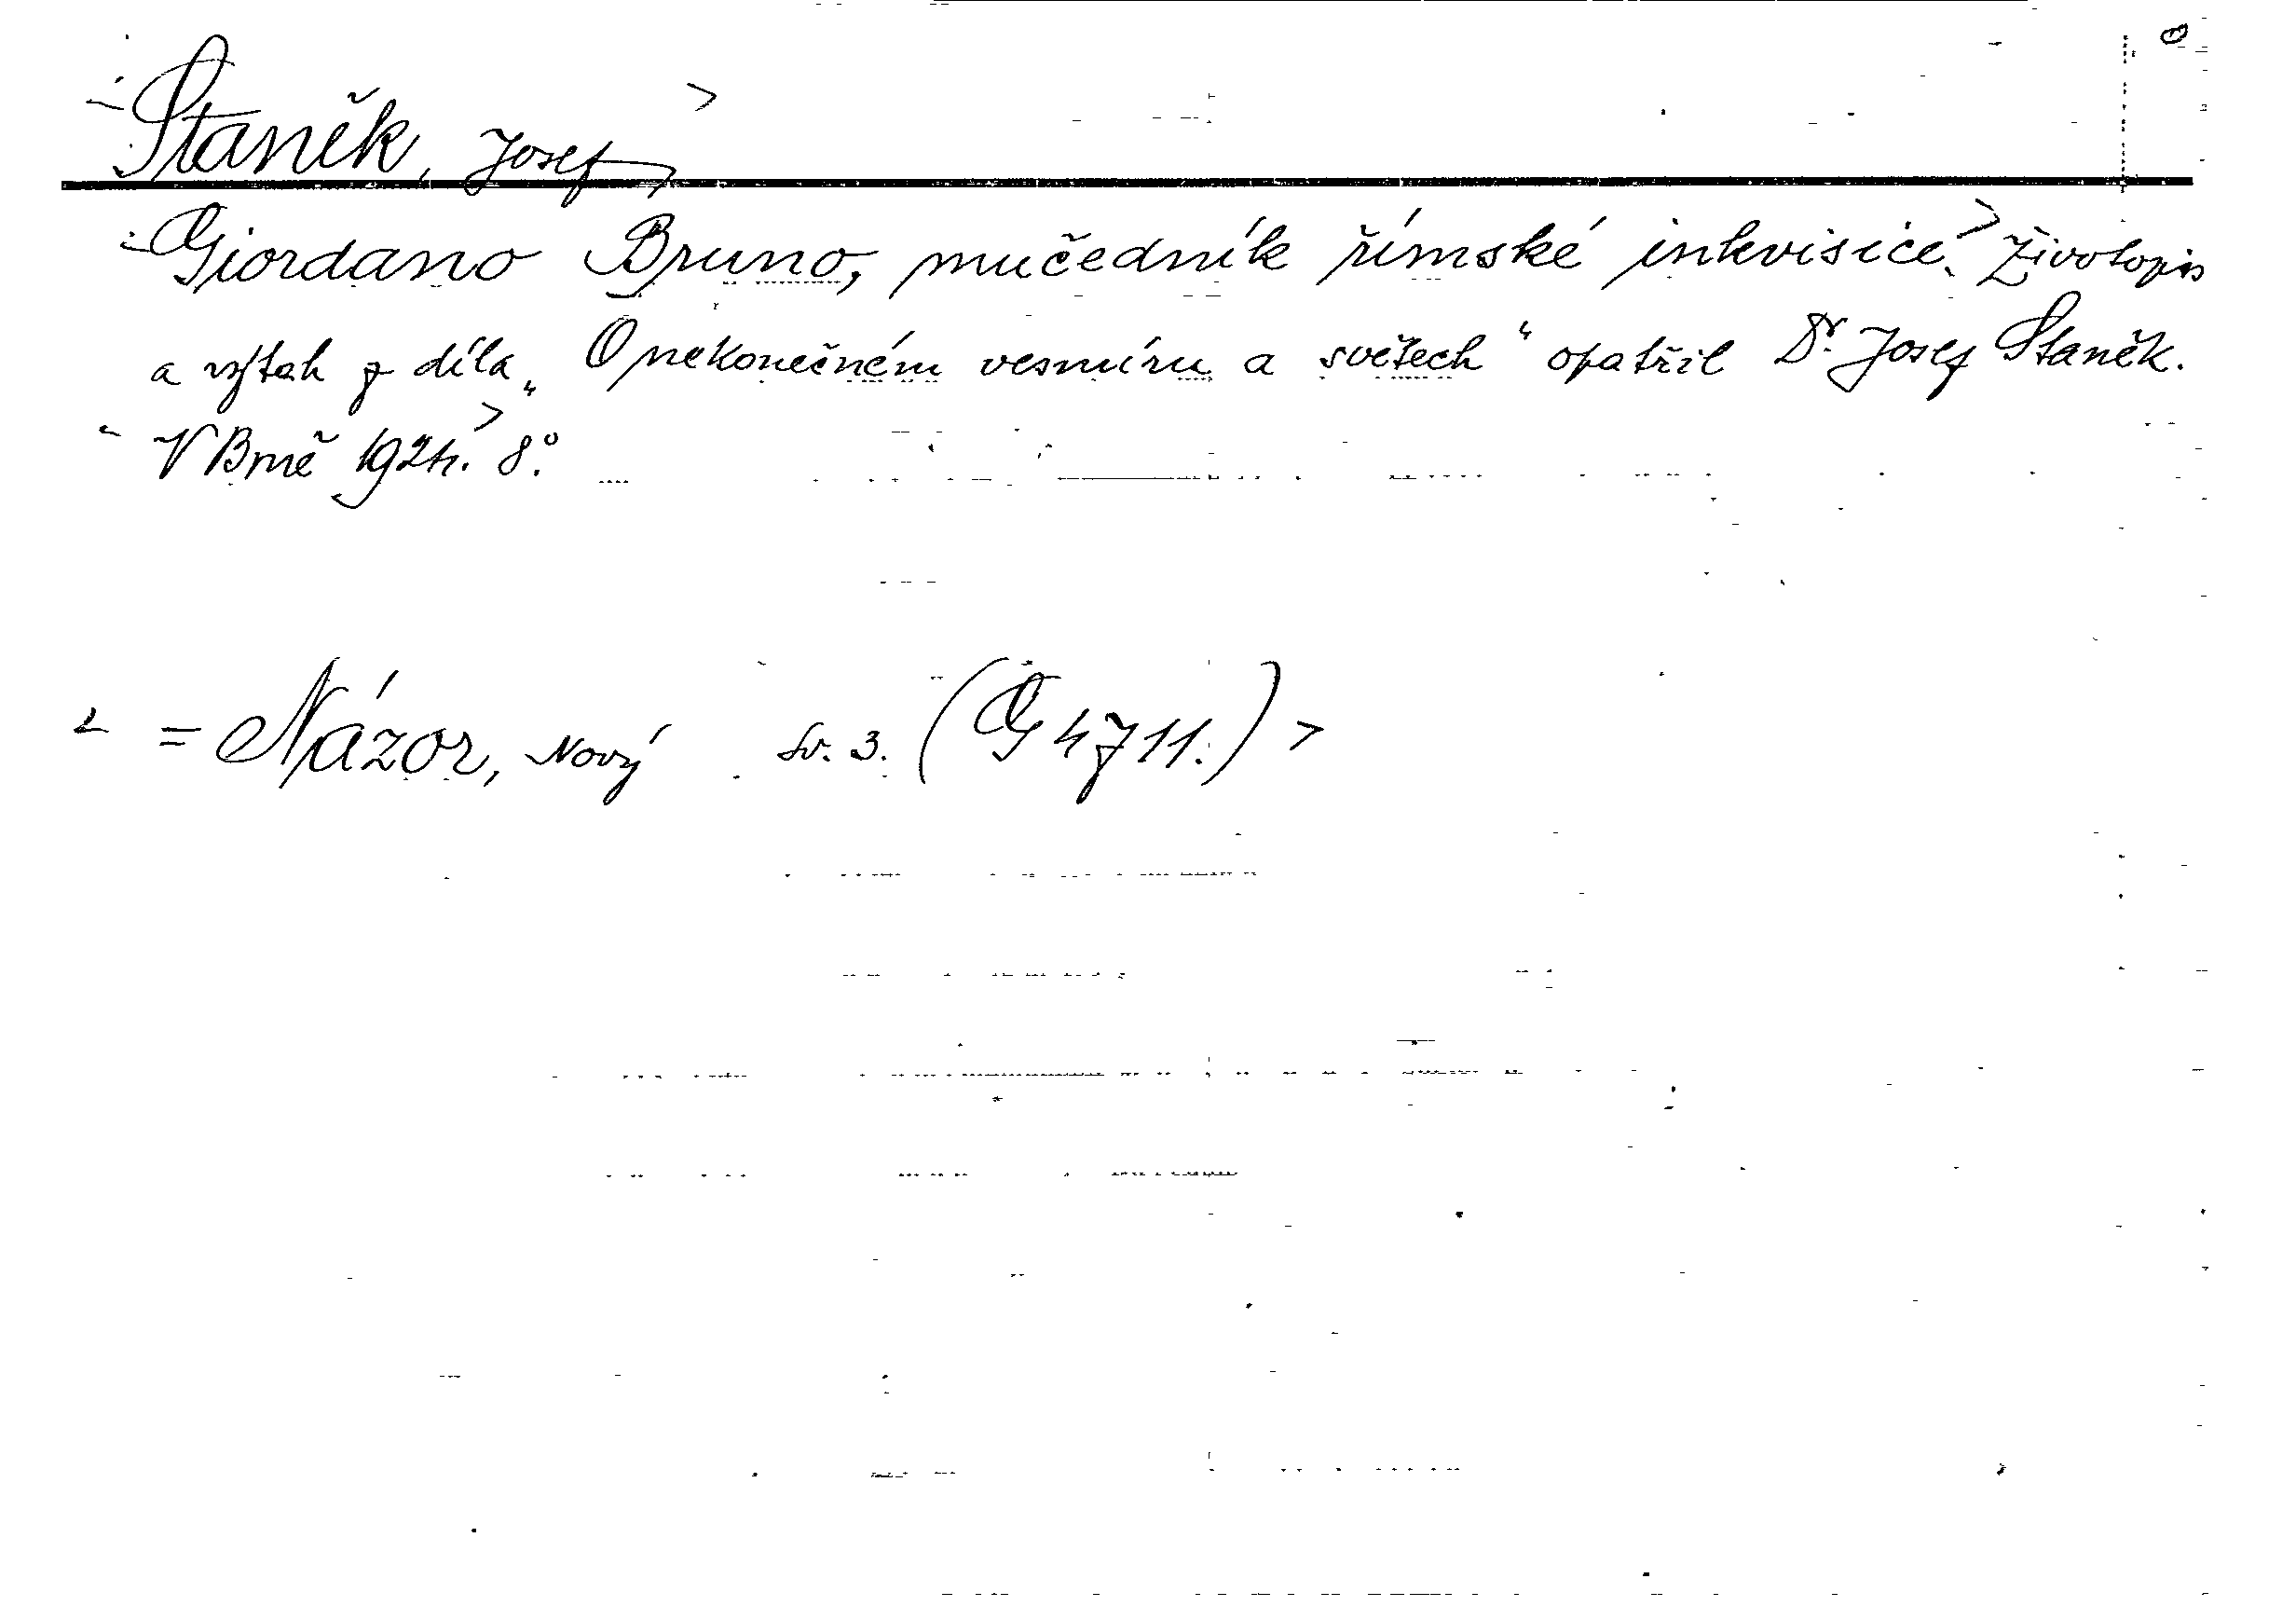 Staněk, Josef
Giordano Bruno, mučedník římské inkvisice. Životopis
a výtah z díla „O nekonečném vesmíru a světech“ opatřil Dr. Josef Staněk.
V Brně 1924. 8°.
= Názor, Nový Sv. 3. (G 4711.)